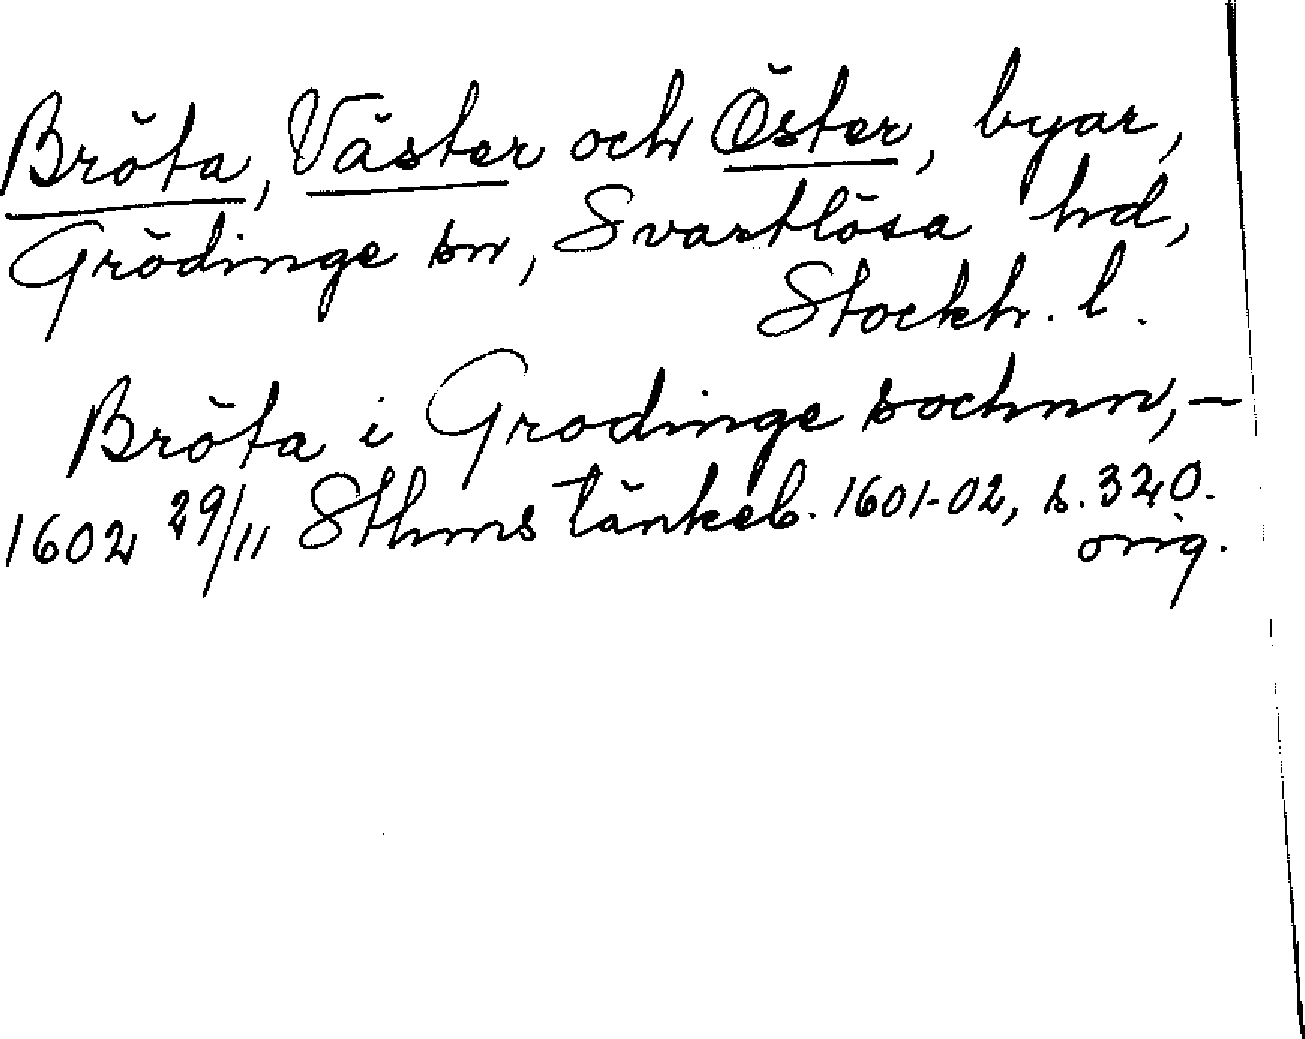 Bröta, Väster och Öster, byar,
Grödinge sn, Svartlösa hd,
Stockh. l.
Bröta i Grodinge sochnn, –
1602 29/11 Sthms tänkeb. 1601-02, s. 320.
orig.